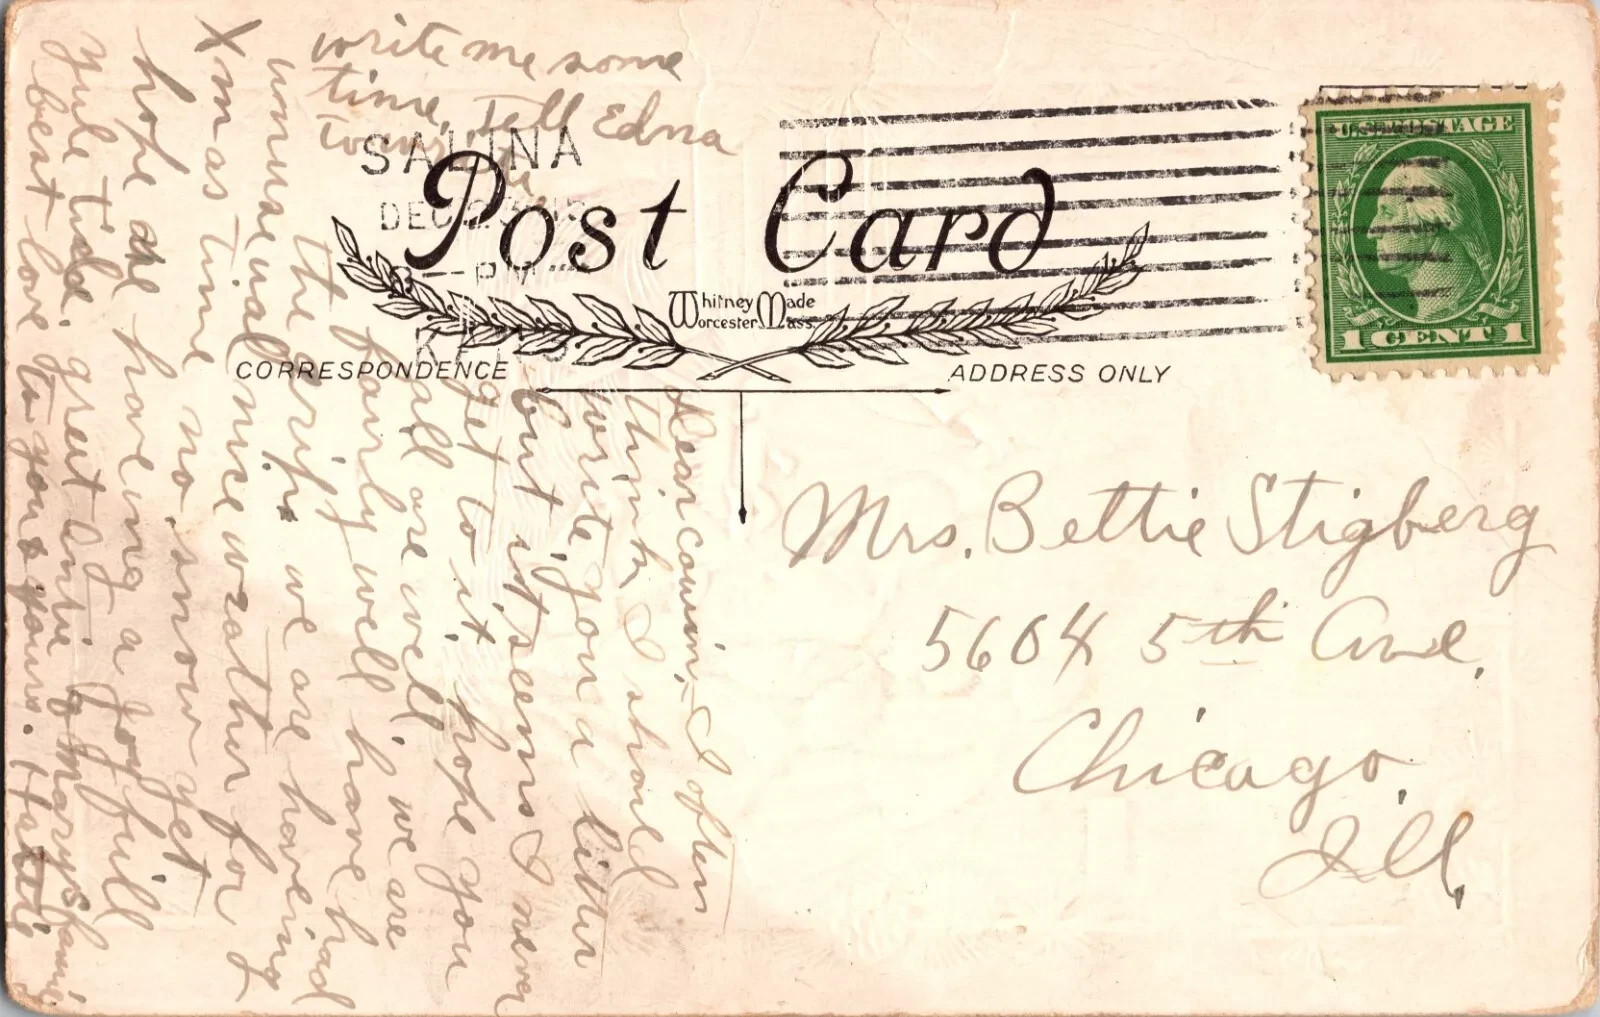 write me some
time, Tell Edna
to write
SALINA
DEC
3 - PM
KANS
U.S. POSTAGE
1 CENT 1
Post Card
Whitney Made
Worcester Mass.
CORRESPONDENCE
ADDRESS ONLY
Dear cousin,- I often
think I should
write you a letter
but it seems I never
get to it, hope you
all are well, we are
fairly well have had
the gripp we are haveing
unusueuall nice weather for
Xmas time no snow yet
hope are haveing a joyfull
yule tide. greet and Mary's famly
best love to you & yours. Hattie
Mrs. Bettie Stigberg
5604 5th Ave,
Chicago,
Ill,